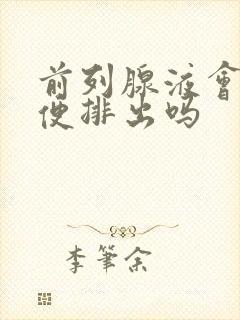 前列腺液會
便排出吗
李筆余